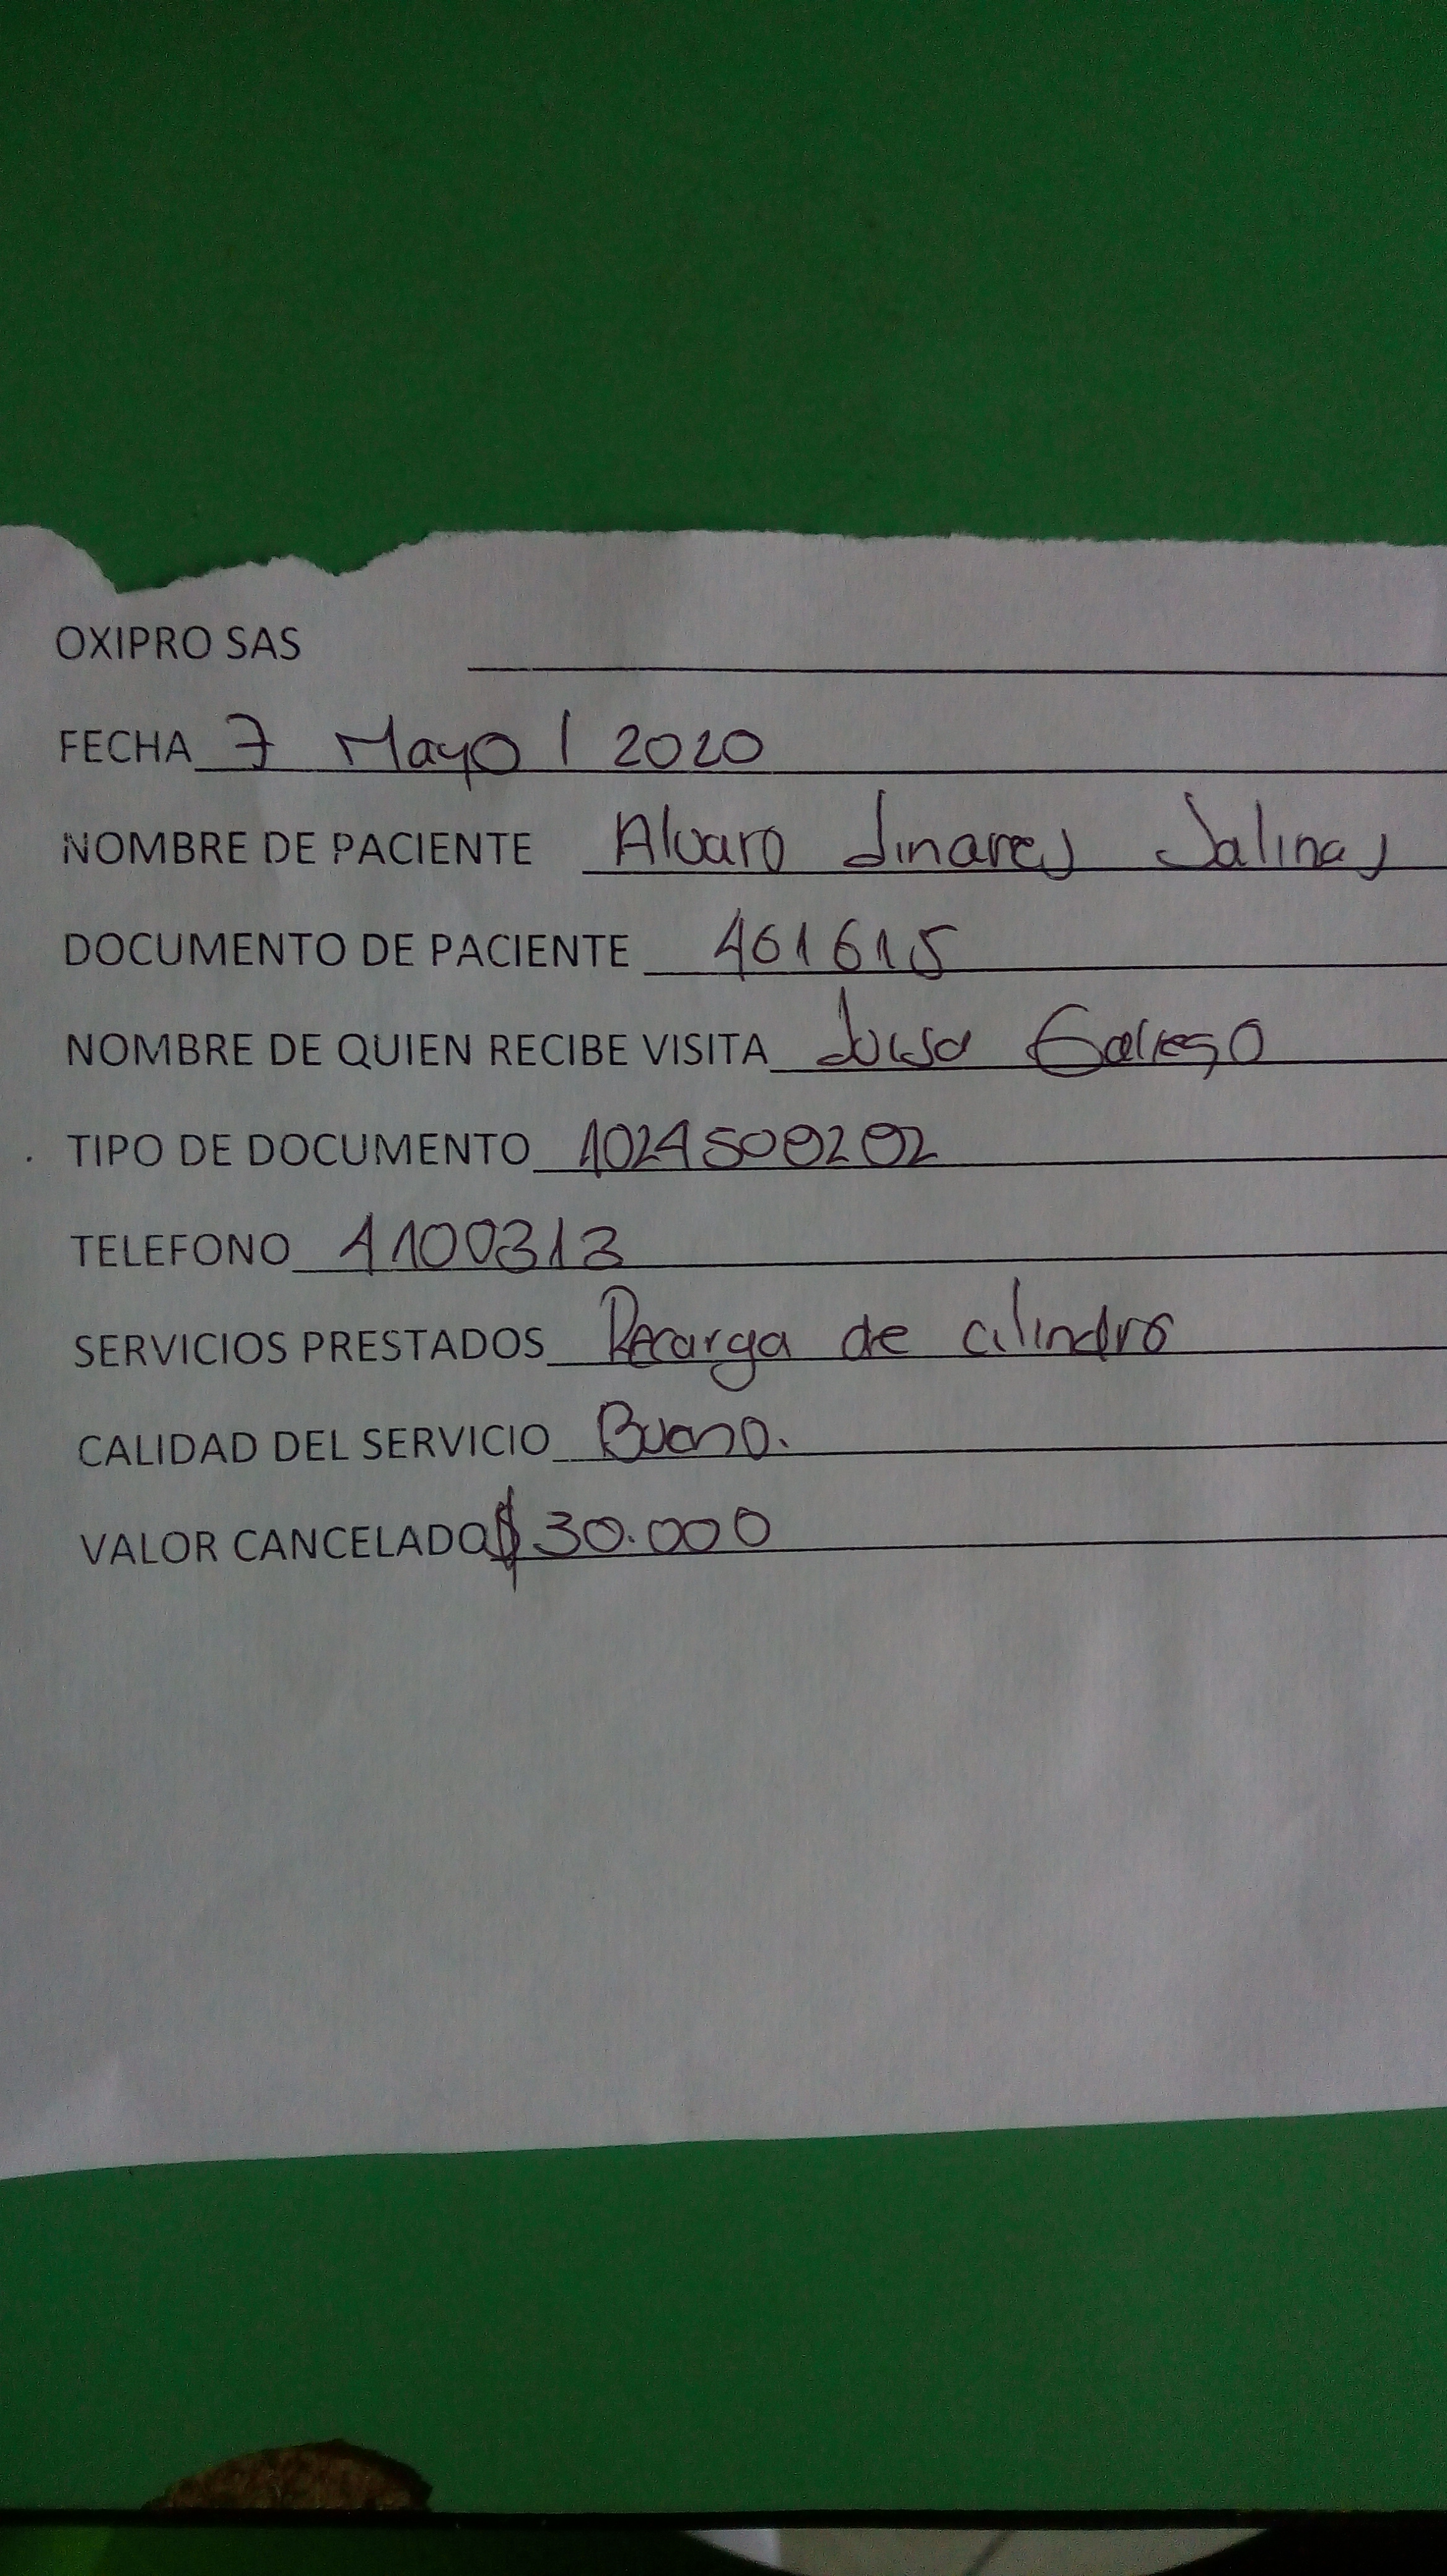 OXIPRO SAS
FECHA 7 Mayo / 2020
NOMBRE DE PACIENTE Alvaro Linares Salinas
DOCUMENTO DE PACIENTE 461615
NOMBRE DE QUIEN RECIBE VISITA Luisa Gallego
TIPO DE DOCUMENTO 1024500202
TELEFONO 4100313
SERVICIOS PRESTADOS Recarga de cilindro
CALIDAD DEL SERVICIO Bueno.
VALOR CANCELADO $ 30.000